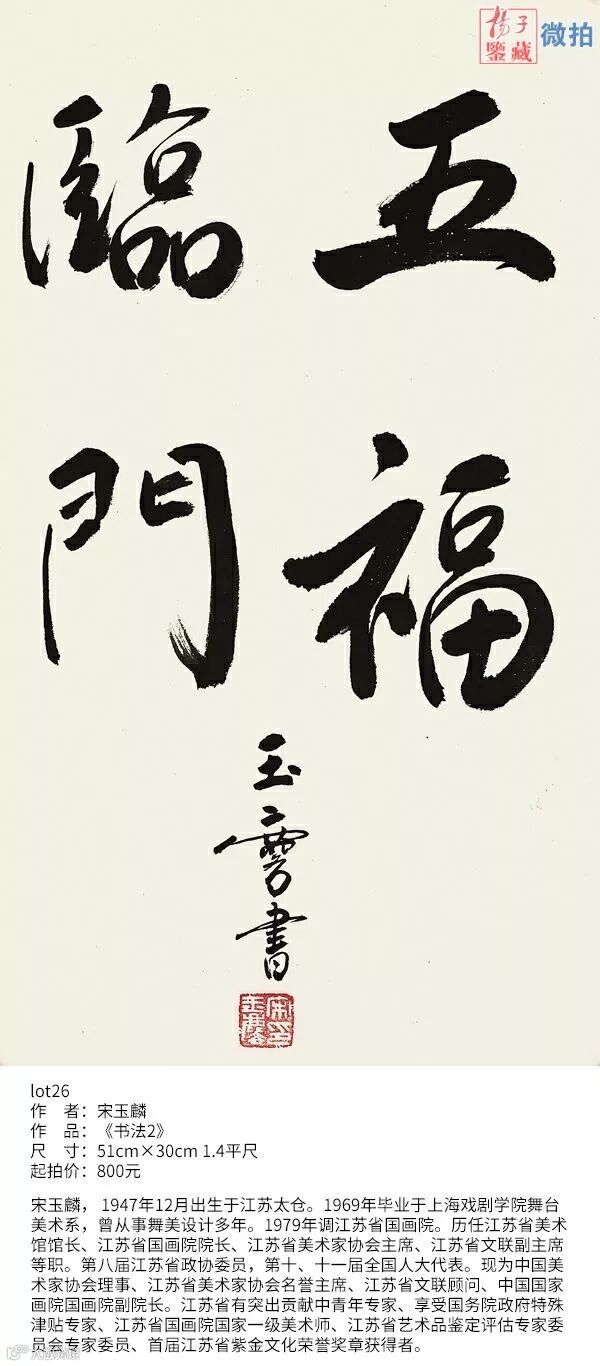 揚子
鑒藏
微拍
五福
臨門
玉麐書
lot26
作　者：宋玉麟
作　品：《书法2》
尺　寸：51cm×30cm 1.4平尺
起拍价：800元
宋玉麟， 1947年12月出生于江苏太仓。1969年毕业于上海戏剧学院舞台
美术系，曾从事舞美设计多年。1979年调江苏省国画院。历任江苏省美术
馆馆长、江苏省国画院院长、江苏省美术家协会主席、江苏省文联副主席
等职。第八届江苏省政协委员，第十、十一届全国人大代表。现为中国美
术家协会理事、江苏省美术家协会名誉主席、江苏省文联顾问、中国国家
画院国画院副院长。江苏省有突出贡献中青年专家、享受国务院政府特殊
津贴专家、江苏省国画院国家一级美术师、江苏省艺术品鉴定评估专家委
员会专家委员、首届江苏省紫金文化荣誉奖章获得者。